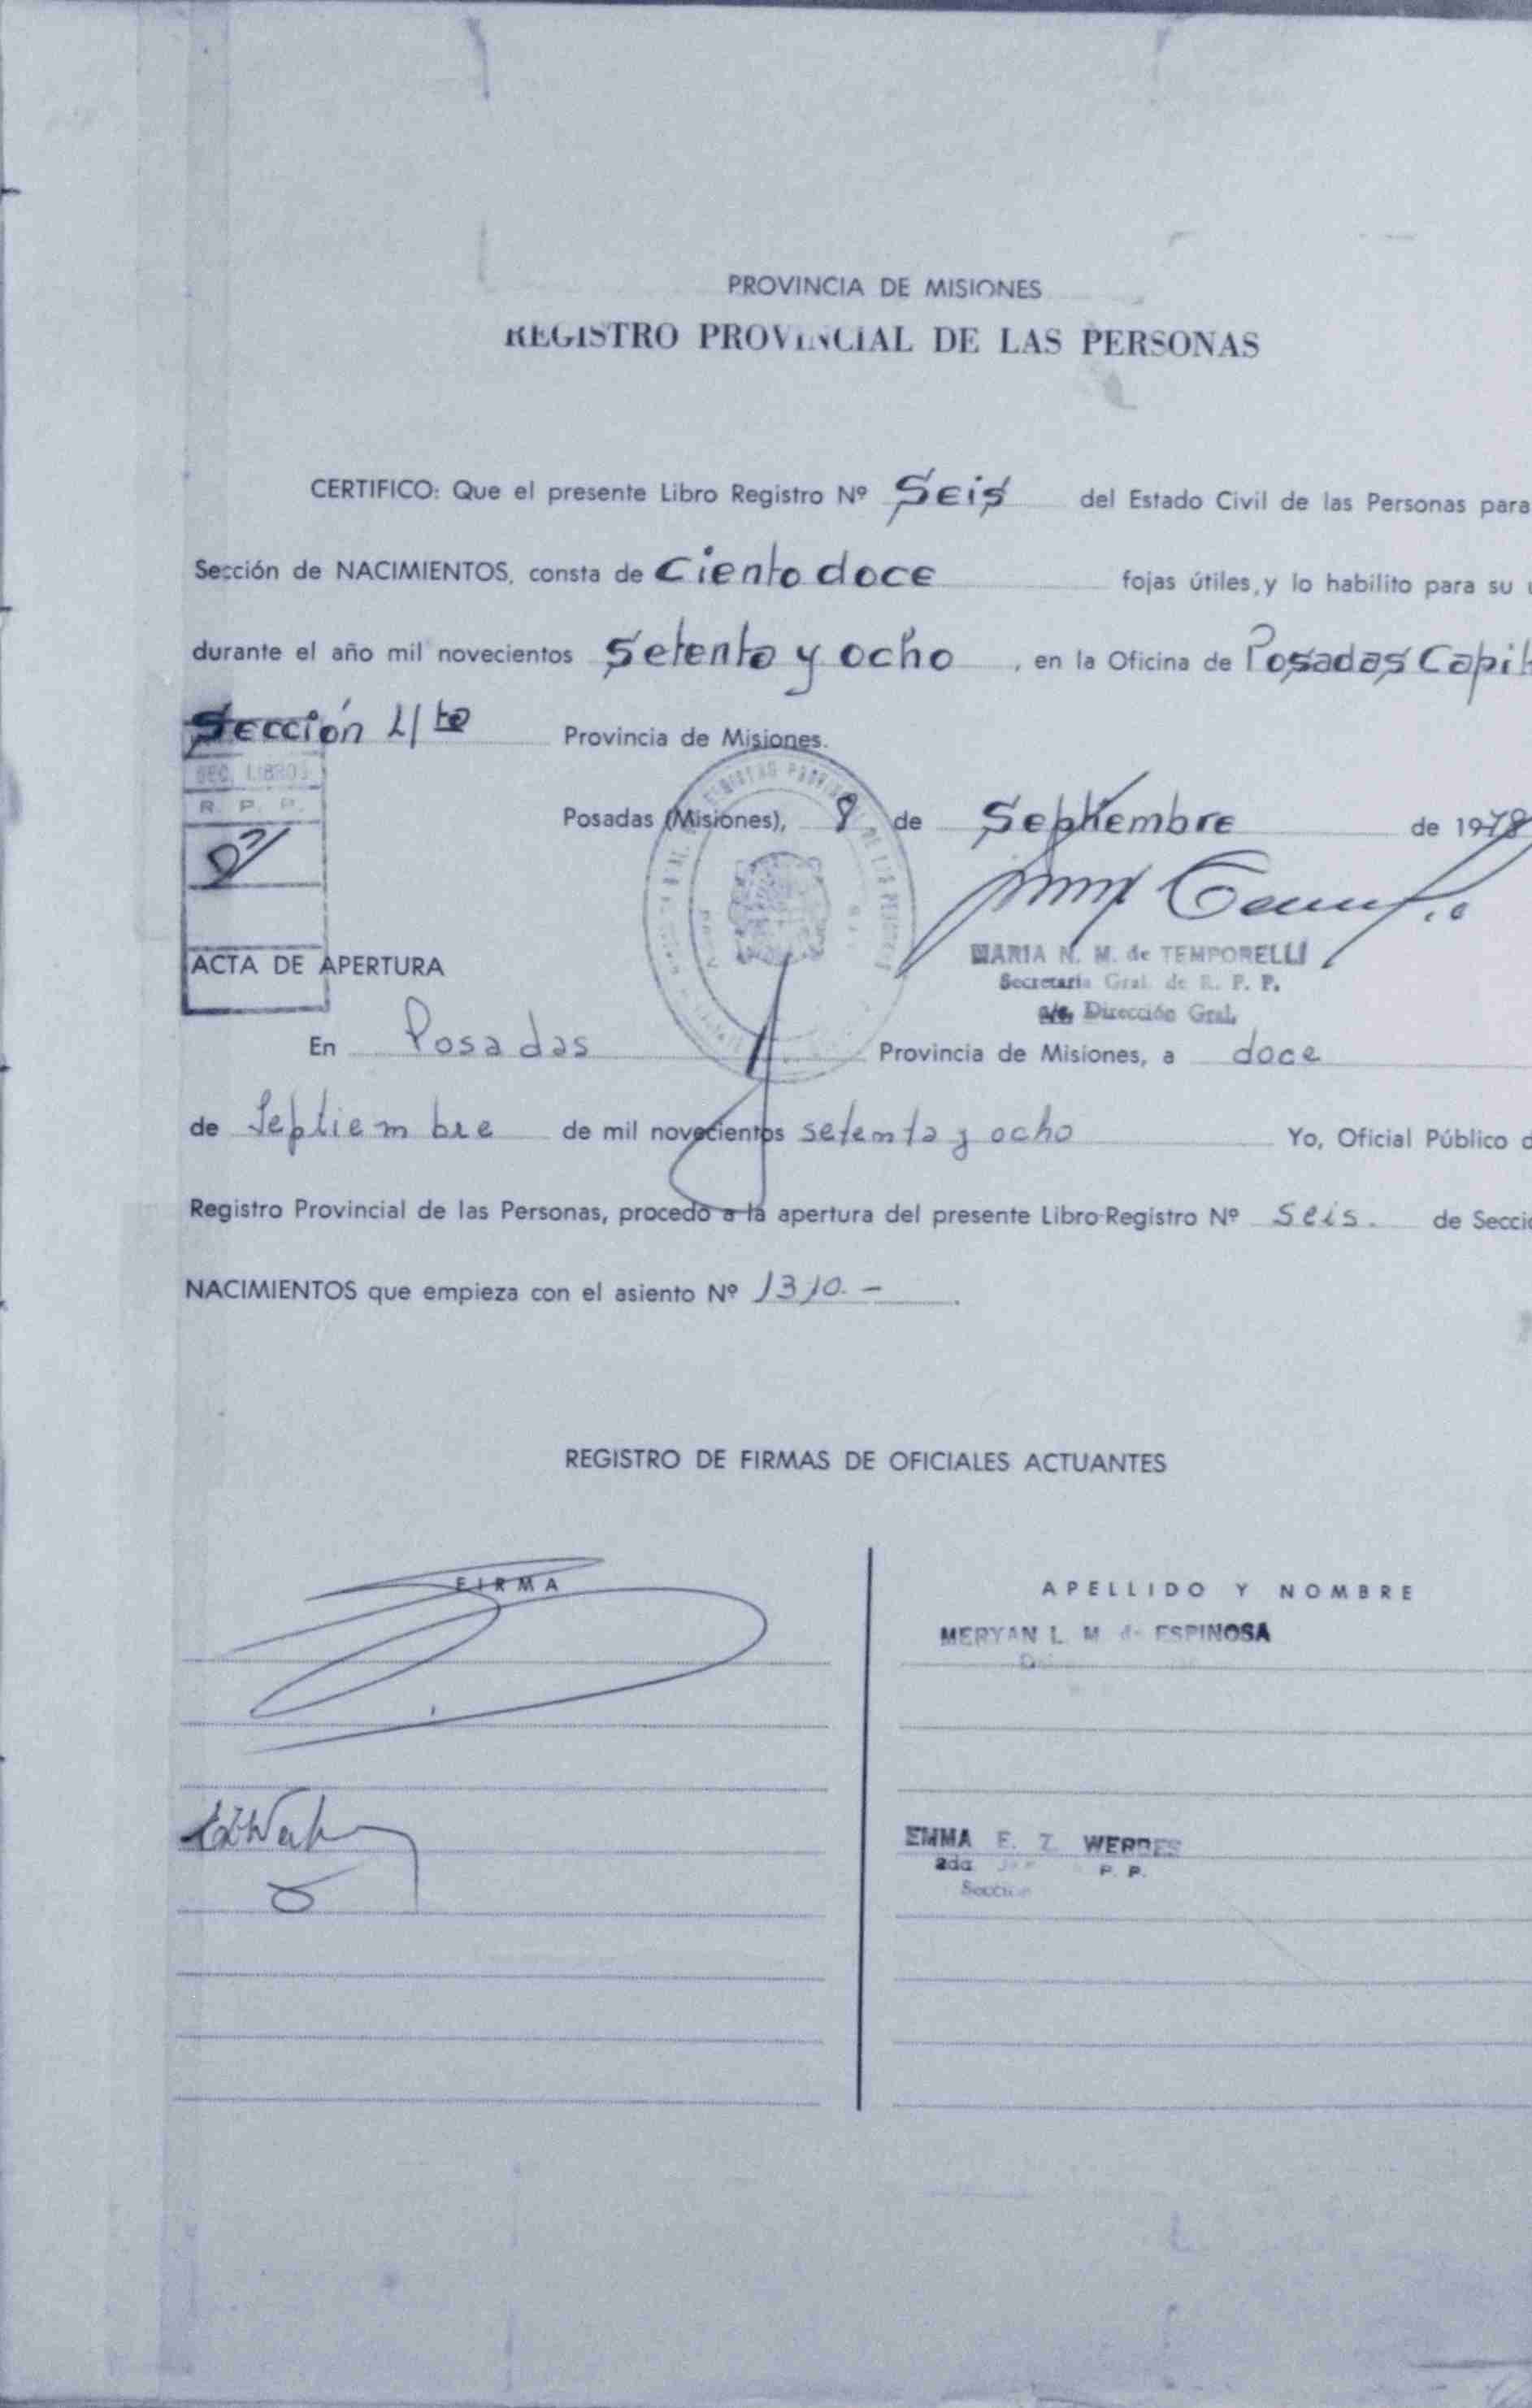 PROVINCIA DE MISIONES
REGISTRO PROVINCIAL DE LAS PERSONAS
CERTIFICO: Que el presente Libro Registro Nº Seis del Estado Civil de las Personas para
Sección de NACIMIENTOS, consta de Ciento doce fojas útiles, y lo habilito para su
durante el año mil novecientos Setenta y ocho, en la Oficina de Posadas Capit
Sección 4ta Provincia de Misiones.
SEC. LIBROS
R. P. P.
Posadas (Misiones), 8 de Septiembre de 1978
MARIA N. M. de TEMPORELLI
Secretaria Gral. de R. P. P.
a/c. Dirección Gral.
ACTA DE APERTURA
En Posadas Provincia de Misiones, a doce
de Septiembre de mil novecientos setenta y ocho Yo, Oficial Público d
Registro Provincial de las Personas, procedo a la apertura del presente Libro-Registro Nº Seis. de Secció
NACIMIENTOS que empieza con el asiento Nº 1310.-
REGISTRO DE FIRMAS DE OFICIALES ACTUANTES
FIRMA
APELLIDO Y NOMBRE
MERYAN L. M. de ESPINOSA
EMMA E. Z. WERDES
2da P. P.
Sección